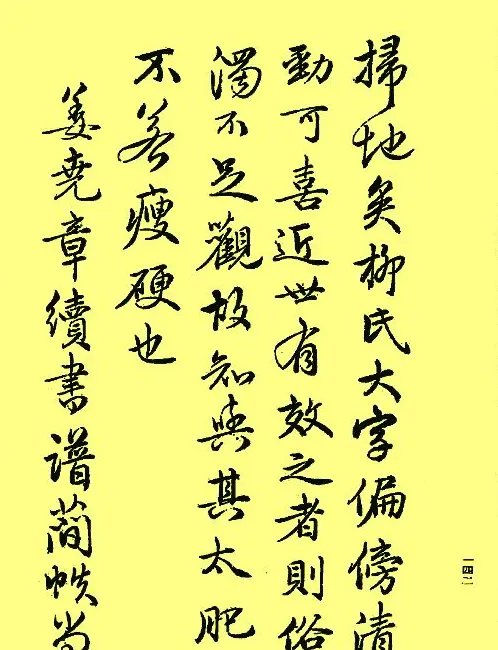 掃地矣柳氏大字偏傍清
勁可喜近世有效之者則俗
濁不足觀故知與其太肥
不若瘦硬也
姜堯章續書譜簡帙尚
一四二